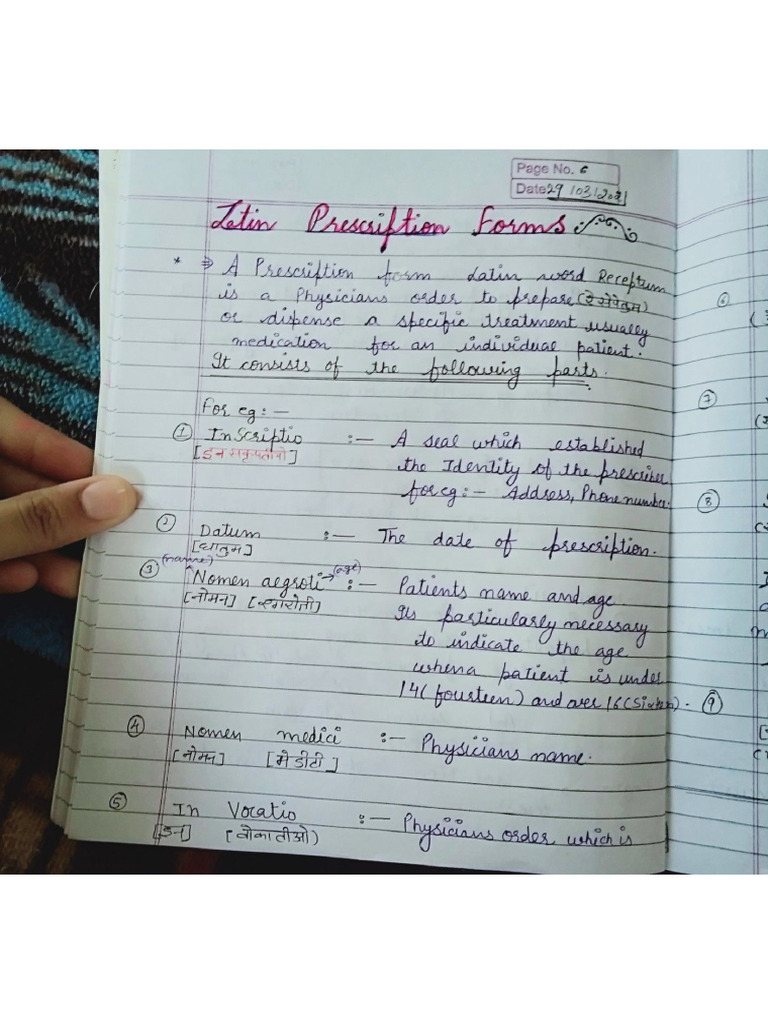 Page No. 6
Date 29/03/2021
Latin Prescription Forms
* ⇒ A Prescription form Latin word Receptum
is a Physicians order to prepare (रेसेपेतुम)
or dispense a specific treatment usually
medication for an individual patient.
It consists of the following parts.
For eg :-
① Inscriptio :- A seal which established
[इनसक्रपतीयो] the Identity of the prescriber
for eg :- Address, Phone number.
② Datum :- The date of prescription.
[धातुम]
(name) (age)
③ Nomen aegroti → :- Patients name and age
[नोमन] [एगरोती] Its particularly necessary
to indicate the age
when a patient is under
14 (fourteen) and over 16 (Sixteen).
④ Nomen medici :- Physicians name.
[नोमन] [मेडीटी]
⑤ In Vocatio :- Physicians order which is
[इन] [वोकातीओ]
⑥
⑦
⑧
⑨